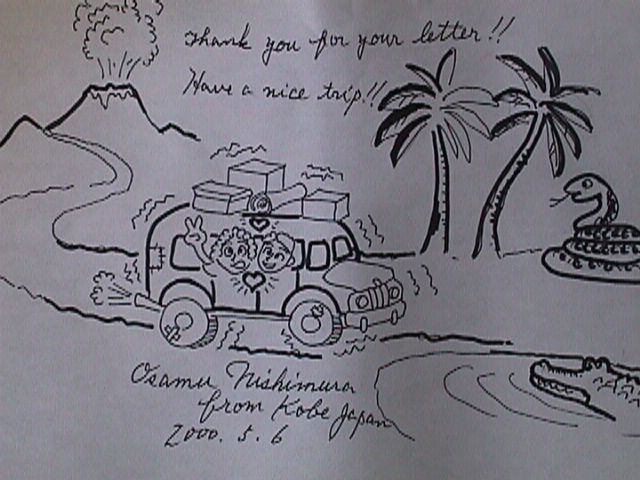 Thank you for your letter!!
Have a nice trip!!
Osamu Nishimura
from Kobe Japan
2000. 5. 6